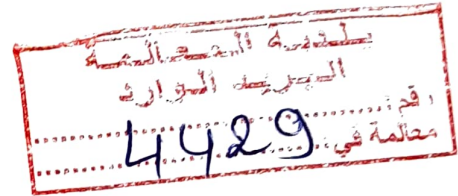 بلدية المحالمة
البريد الوارد
رقم: 4429
محالمة في: